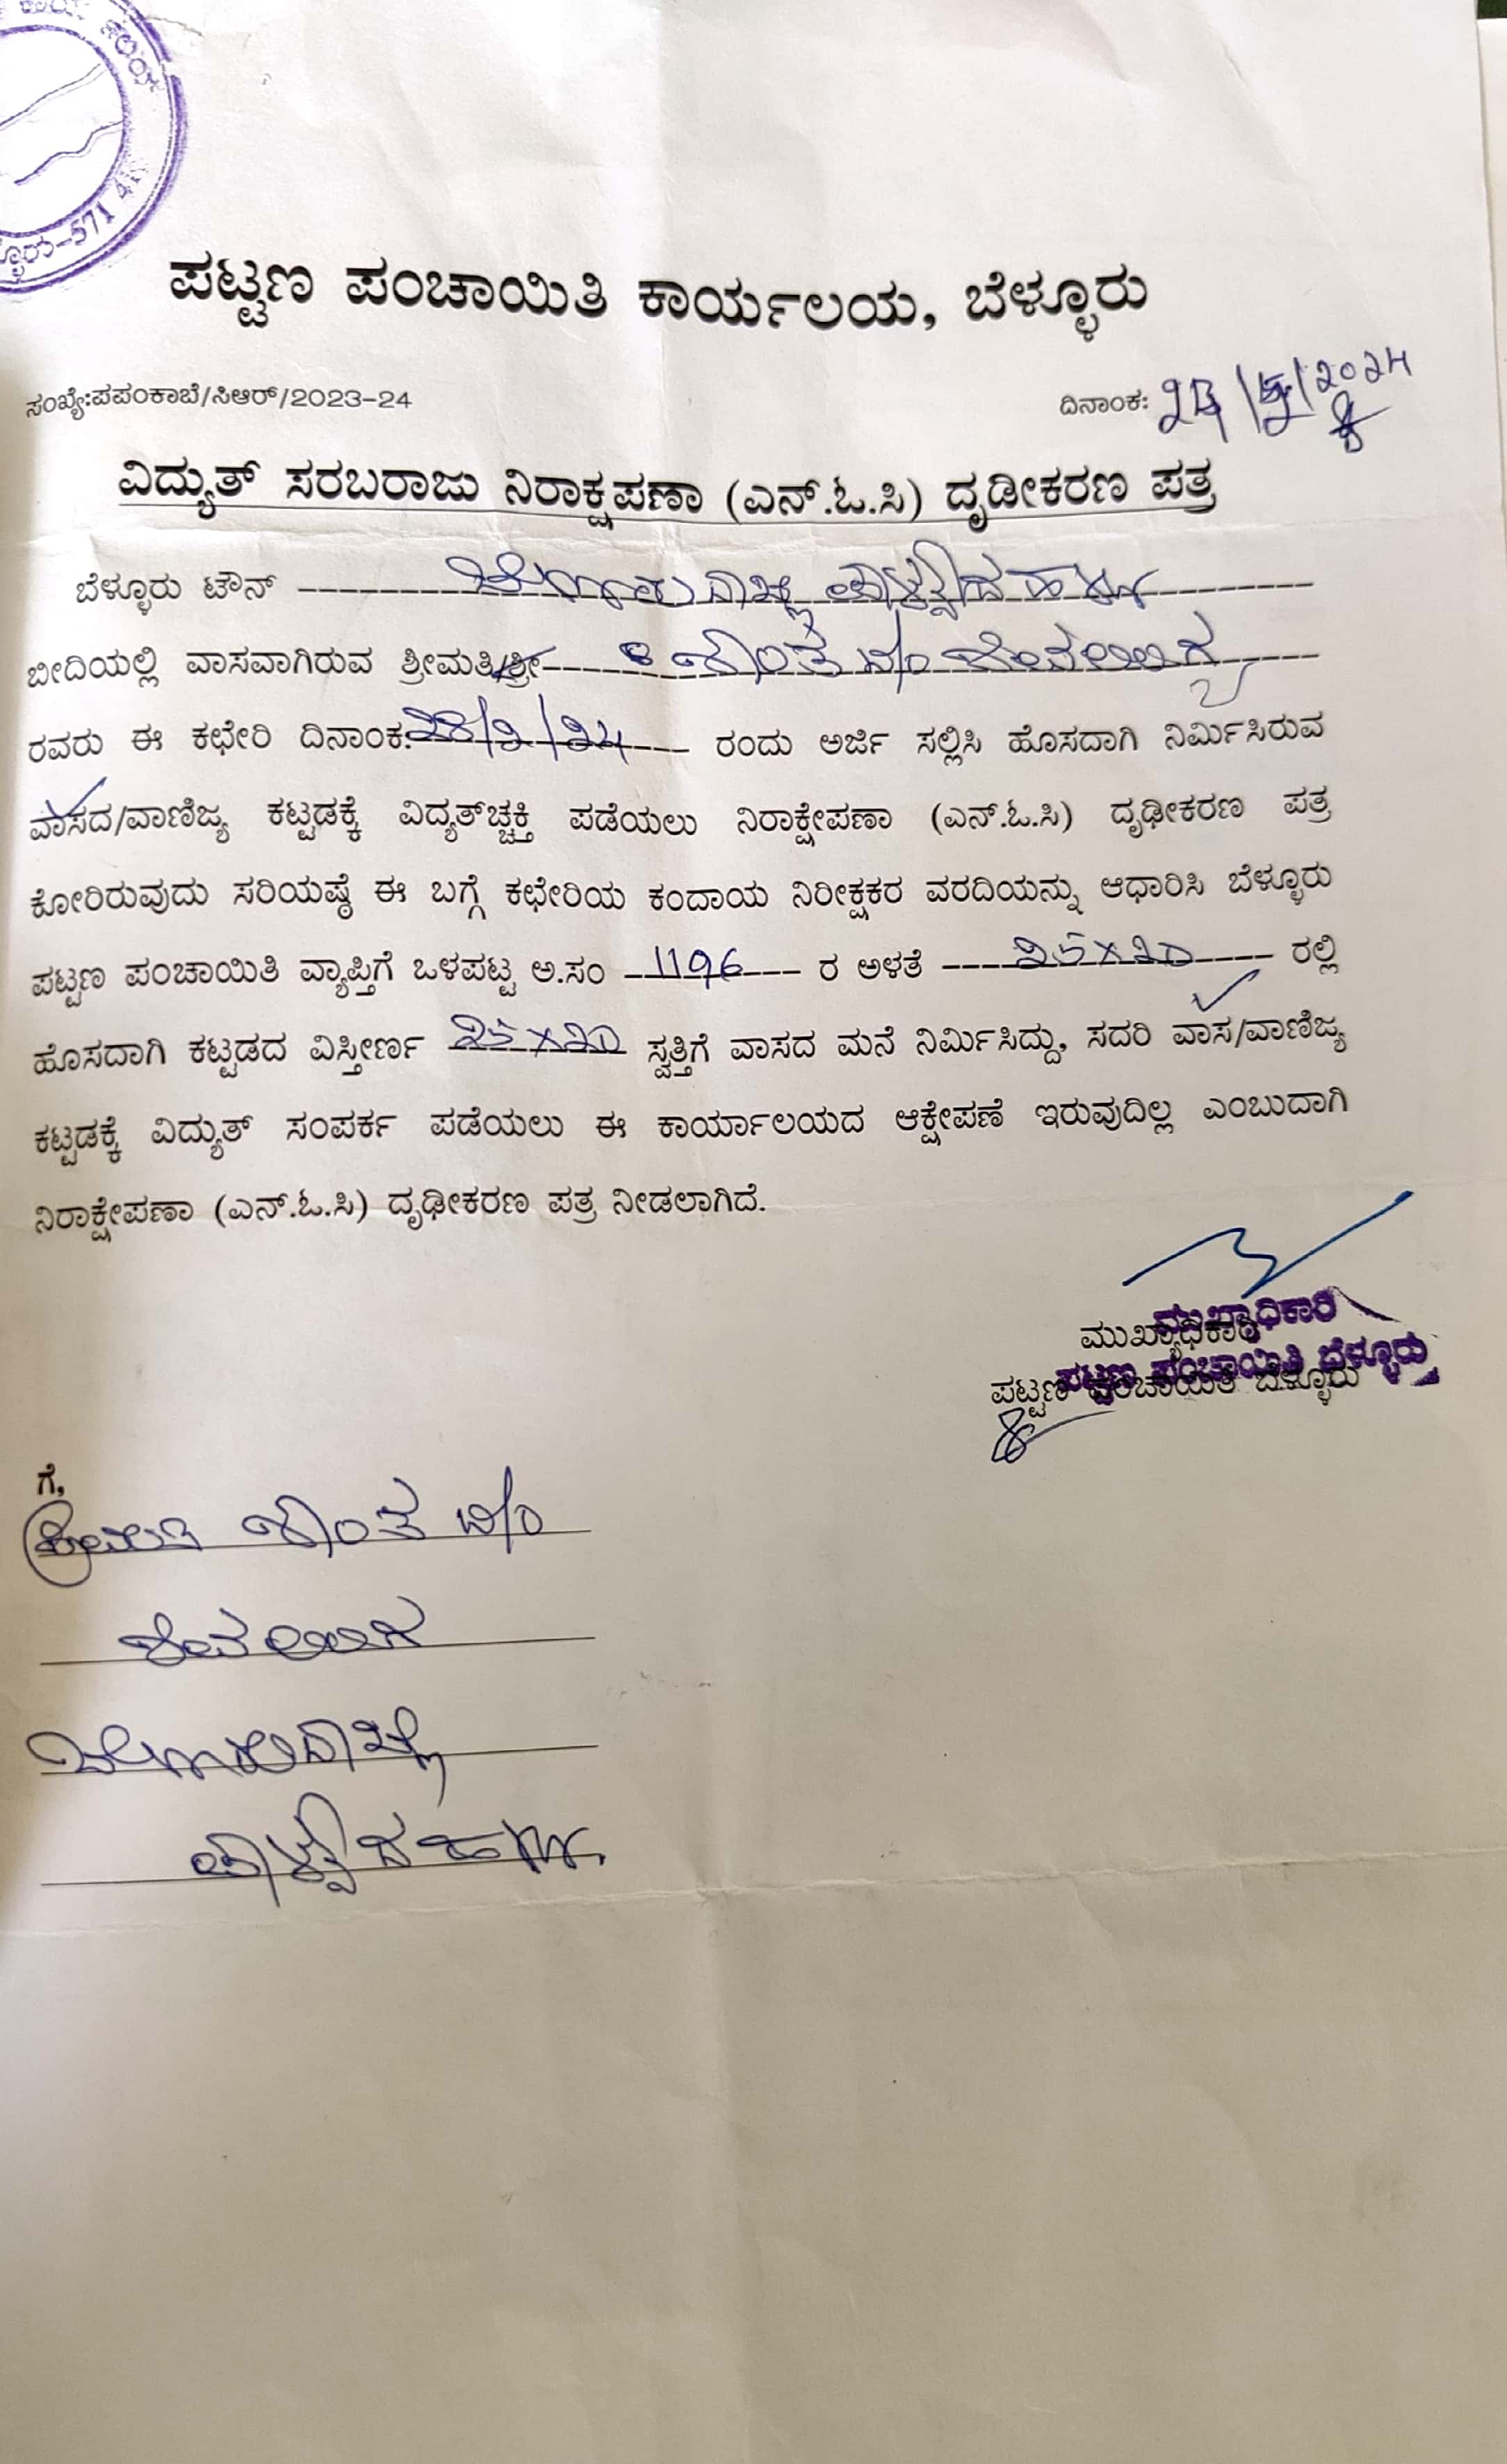 ಪಟ್ಟಣ ಪಂಚಾಯಿತಿ ಕಾರ್ಯಲಯ, ಬೆಳ್ಳೂರು
ಸಂಖ್ಯೆ:ಪಪಂಕಾಬೆ/ಸಿಆರ್/2023-24 ದಿನಾಂಕ: /2024
ವಿದ್ಯುತ್ ಸರಬರಾಜು ನಿರಾಕ್ಷಪಣಾ (ಎನ್.ಓ.ಸಿ) ದೃಡೀಕರಣ ಪತ್ರ
ಬೆಳ್ಳೂರು ಟೌನ್
ಬೀದಿಯಲ್ಲಿ ವಾಸವಾಗಿರುವ ಶ್ರೀಮತಿ/ಶ್ರೀ ಶಾಂತ
ರವರು ಈ ಕಛೇರಿ ದಿನಾಂಕ:28/2/24 ರಂದು ಅರ್ಜಿ ಸಲ್ಲಿಸಿ ಹೊಸದಾಗಿ ನಿರ್ಮಿಸಿರುವ
ವಾಸದ/ವಾಣಿಜ್ಯ ಕಟ್ಟಡಕ್ಕೆ ವಿದ್ಯತ್‌ಚ್ಚಕ್ತಿ ಪಡೆಯಲು ನಿರಾಕ್ಷೇಪಣಾ (ಎನ್.ಓ.ಸಿ) ದೃಢೀಕರಣ ಪತ್ರ
ಕೋರಿರುವುದು ಸರಿಯಷ್ಠೆ ಈ ಬಗ್ಗೆ ಕಛೇರಿಯ ಕಂದಾಯ ನಿರೀಕ್ಷಕರ ವರದಿಯನ್ನು ಆಧಾರಿಸಿ ಬೆಳ್ಳೂರು
ಪಟ್ಟಣ ಪಂಚಾಯಿತಿ ವ್ಯಾಪ್ತಿಗೆ ಒಳಪಟ್ಟ ಅ.ಸಂ 1196 ರ ಅಳತೆ 25X20 ರಲ್ಲಿ
ಹೊಸದಾಗಿ ಕಟ್ಟಡದ ವಿಸ್ತೀರ್ಣ 25X20 ಸ್ವತ್ತಿಗೆ ವಾಸದ ಮನೆ ನಿರ್ಮಿಸಿದ್ದು, ಸದರಿ ವಾಸ/ವಾಣಿಜ್ಯ
ಕಟ್ಟಡಕ್ಕೆ ವಿದ್ಯುತ್ ಸಂಪರ್ಕ ಪಡೆಯಲು ಈ ಕಾರ್ಯಾಲಯದ ಆಕ್ಷೇಪಣೆ ಇರುವುದಿಲ್ಲ ಎಂಬುದಾಗಿ
ನಿರಾಕ್ಷೇಪಣಾ (ಎನ್.ಓ.ಸಿ) ದೃಢೀಕರಣ ಪತ್ರ ನೀಡಲಾಗಿದೆ.
ಮುಖ್ಯಾಧಿಕಾರಿ
ಮುಖ್ಯಾಧಿಕಾರಿ
ಪಟ್ಟಣ ಪಂಚಾಯಿತಿ ಬೆಳ್ಳೂರು
ಪಟ್ಟಣ ಪಂಚಾಯಿತಿ ಬೆಳ್ಳೂರು
ಗೆ,
ಶ್ರೀಮತಿ ಶಾಂತ